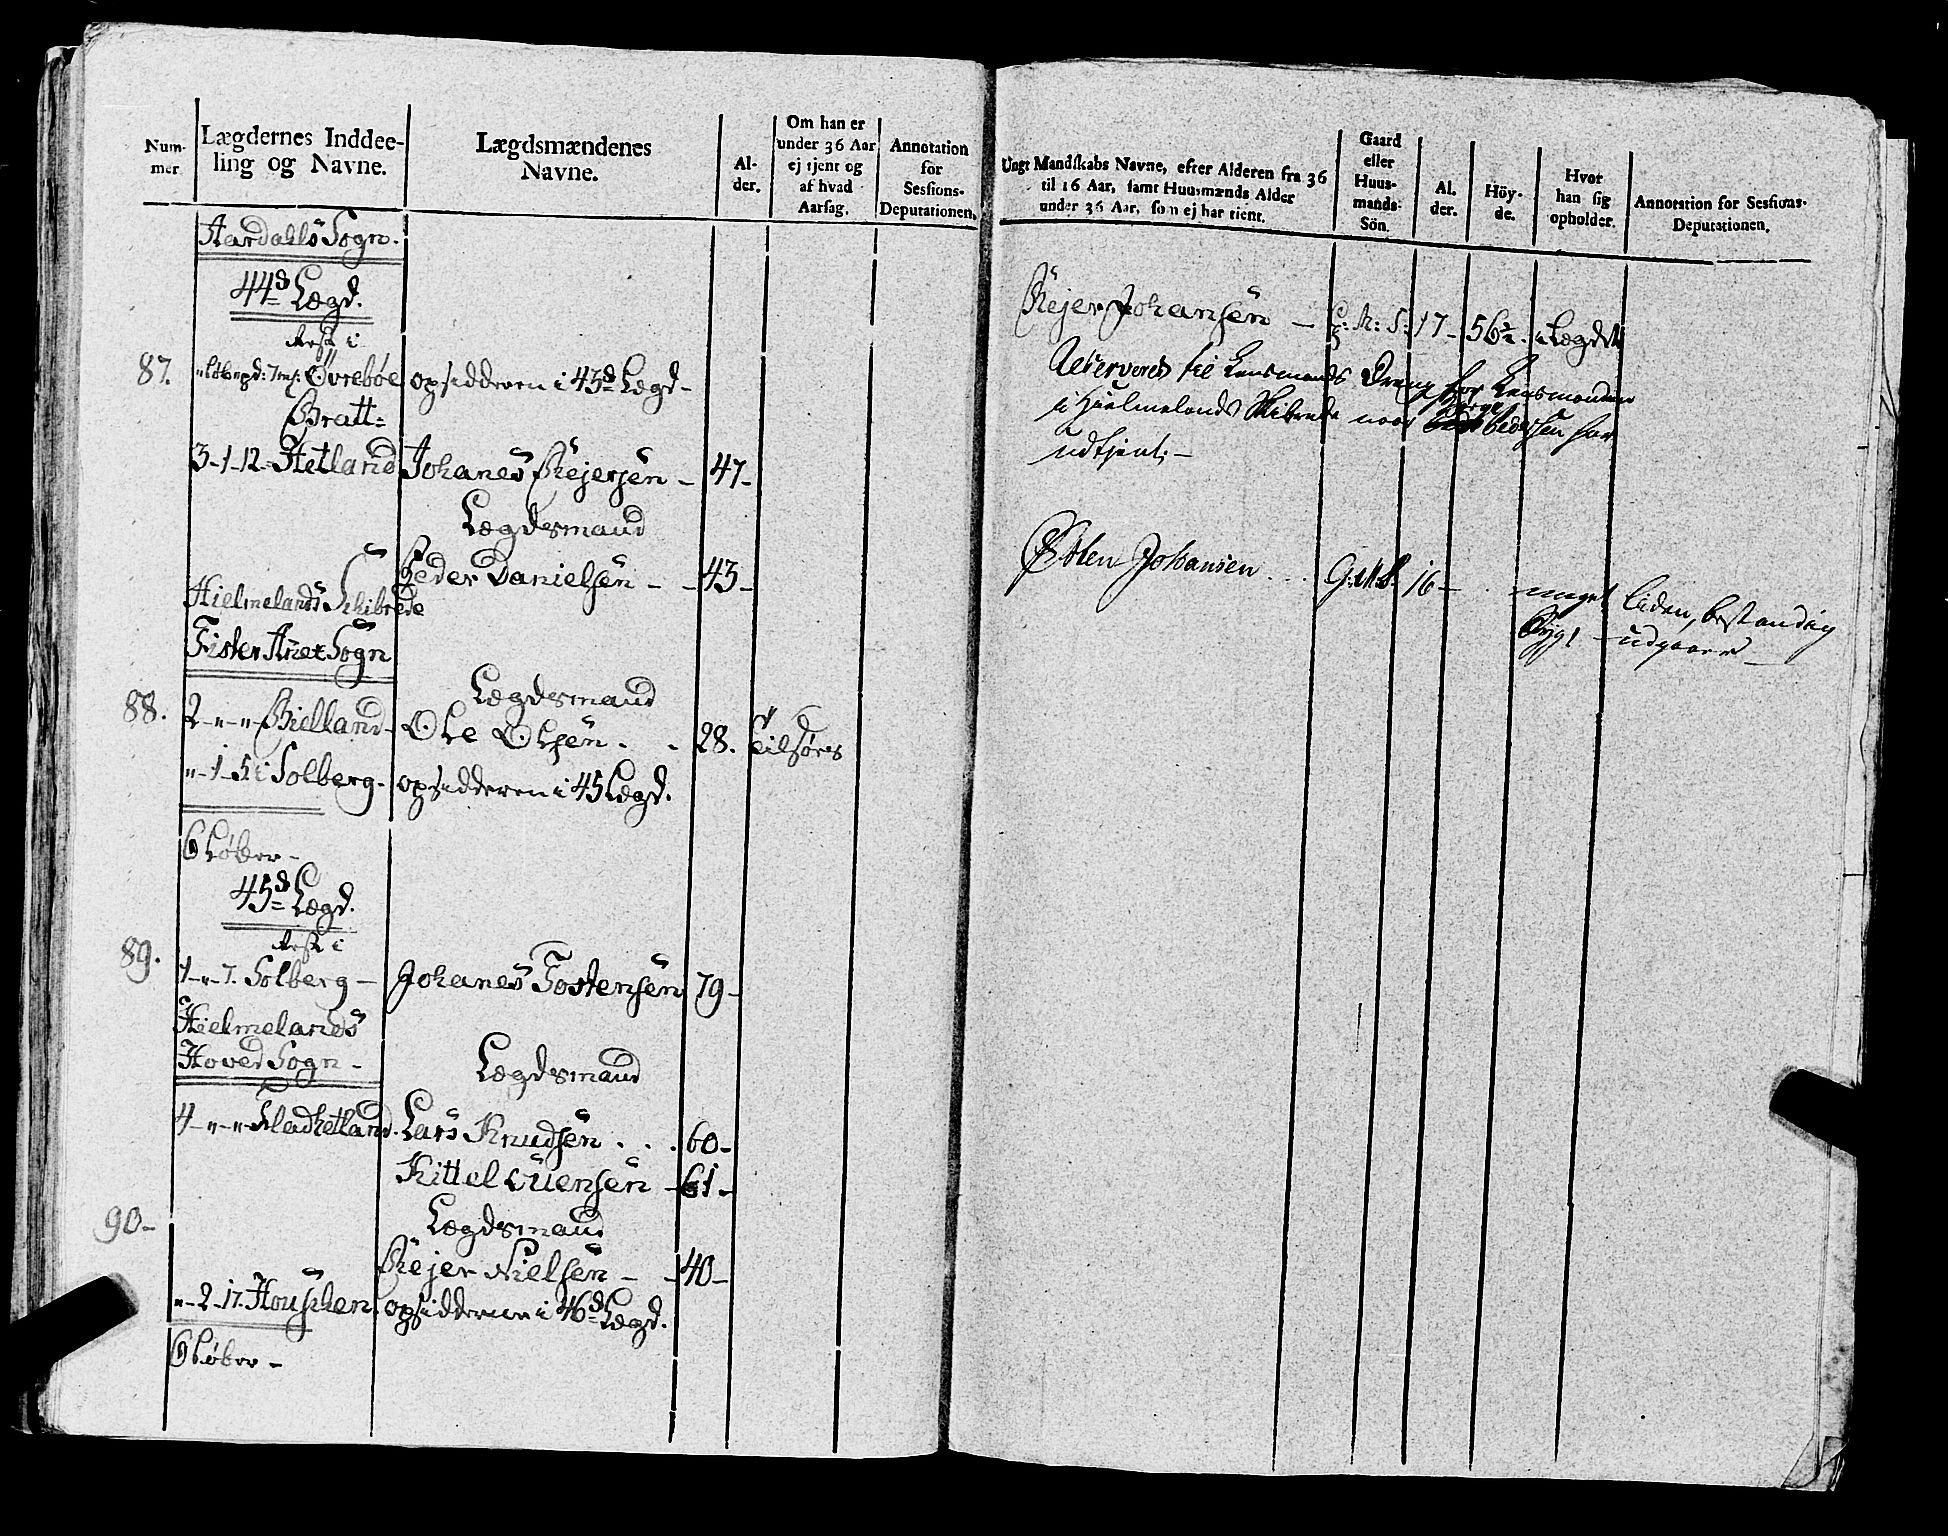 Num-
mer
Lægdernes Inddee-
ling og Navne.
Lægdsmændenes
Navne.
Al-
der.
Om han er
under 36 Aar
ej tjent og
af hvad
Aarsag.
Annotation
for
Sessions-
Deputationen.
Aardahls Sogn.
44d Lægd.
Rest i
87. Øvrebøe opsidderen i 45d Lægd-
Bratt=
3-1-12-Hetland Johanes Rejersen - 47-
Lægdsmand
Peder Danielsen - - 43-
Hielmelands Skibrede
Fister Anex Sogn
Lægdsmand
88. 2-"-"-Bielland- Ole Olsen . . 28.
"-1-Solberg- opsidderen i 45 Lægd.
6 Løber-
45d Lægd.
Rest i
89. 1-"-7. Solberg- Johanes Tostensen 79-
Hielmelands
Hoved Sogn-
Lægdsmand
4-"-"-Kladhetland. Lars Knudsen . . . 60-
Kittel Ouensen - 61-
90- Lægdsmand
Rejer Nielsen - - 40-
"-2-17. Houschen. opsidderne i 46d Lægd.
6 Løber-
Ungt Mandskabs Navne, efter Alderen fra 36
til 16 Aar, samt Huusmænds Alder
under 36 Aar, som ej har tient.
Gaard
eller
Huus-
mands-
Sön.
Al-
der.
Höy-
de.
Hvor
han sig
opholder.
Annotation for Sessions-
Deputationen.
Rejer Johansen - G: M: S: 17- 56½. i Lægdet
Reserveres til Lensmands Dreng for Lensmanden
i Hielmelands Skibrede naar Pedersen har
udtjent.-
Osten Johansen . . . G. M. S. 16- meget liden, bestandig
Sygt - udgaaer-